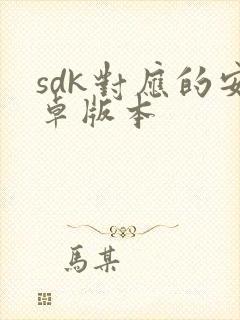 sdk對應的安
卓版本
馬某